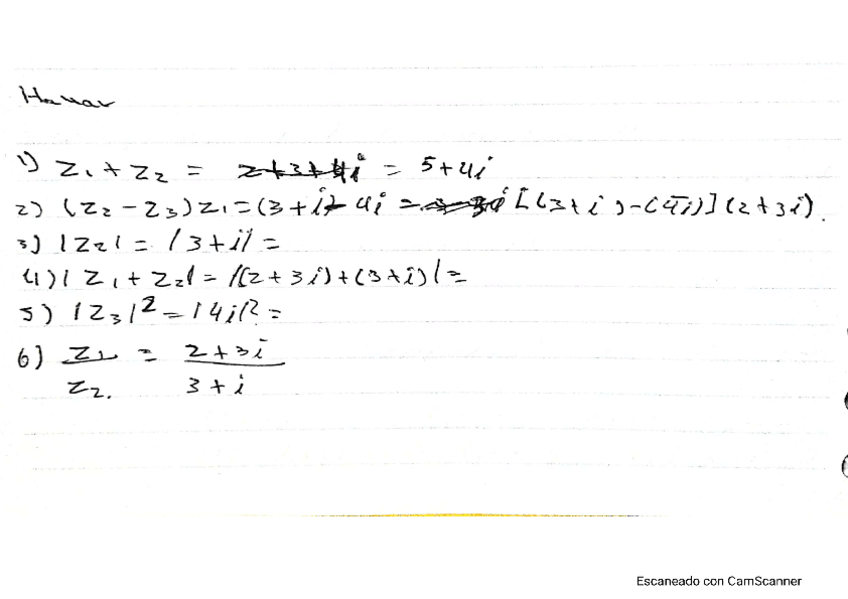 Hallar
1) Z₁ + Z₂ = 2+3+4i = 5+4i
2) (Z₂ - Z₃)Z₁ = (3+i)- 4i = [(3+i)-(4i)](2+3i).
3) |Z₂| = |3+i| =
4) |Z₁ + Z₂| = |(2+3i)+(3+i)| =
5) |Z₃|² = |4i|² =
6) Z₁/Z₂. = 2+3i/3+i
Escaneado con CamScanner